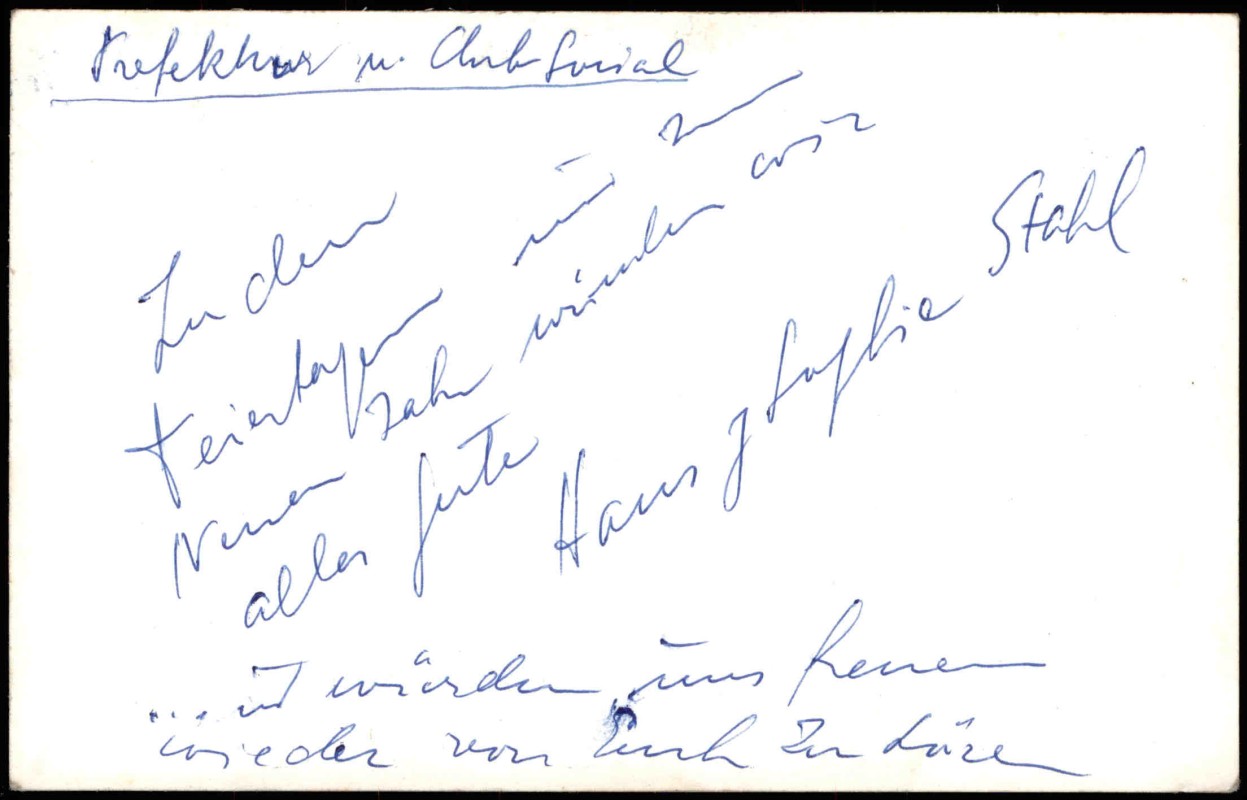 Prefektur u. Club Social
Zu den
Feiertagen und zum
Neuen Jahr wünschen wir
alles gute
Hans y Sophie Stahl
... und würden uns freuen
wieder von Euch zu hören